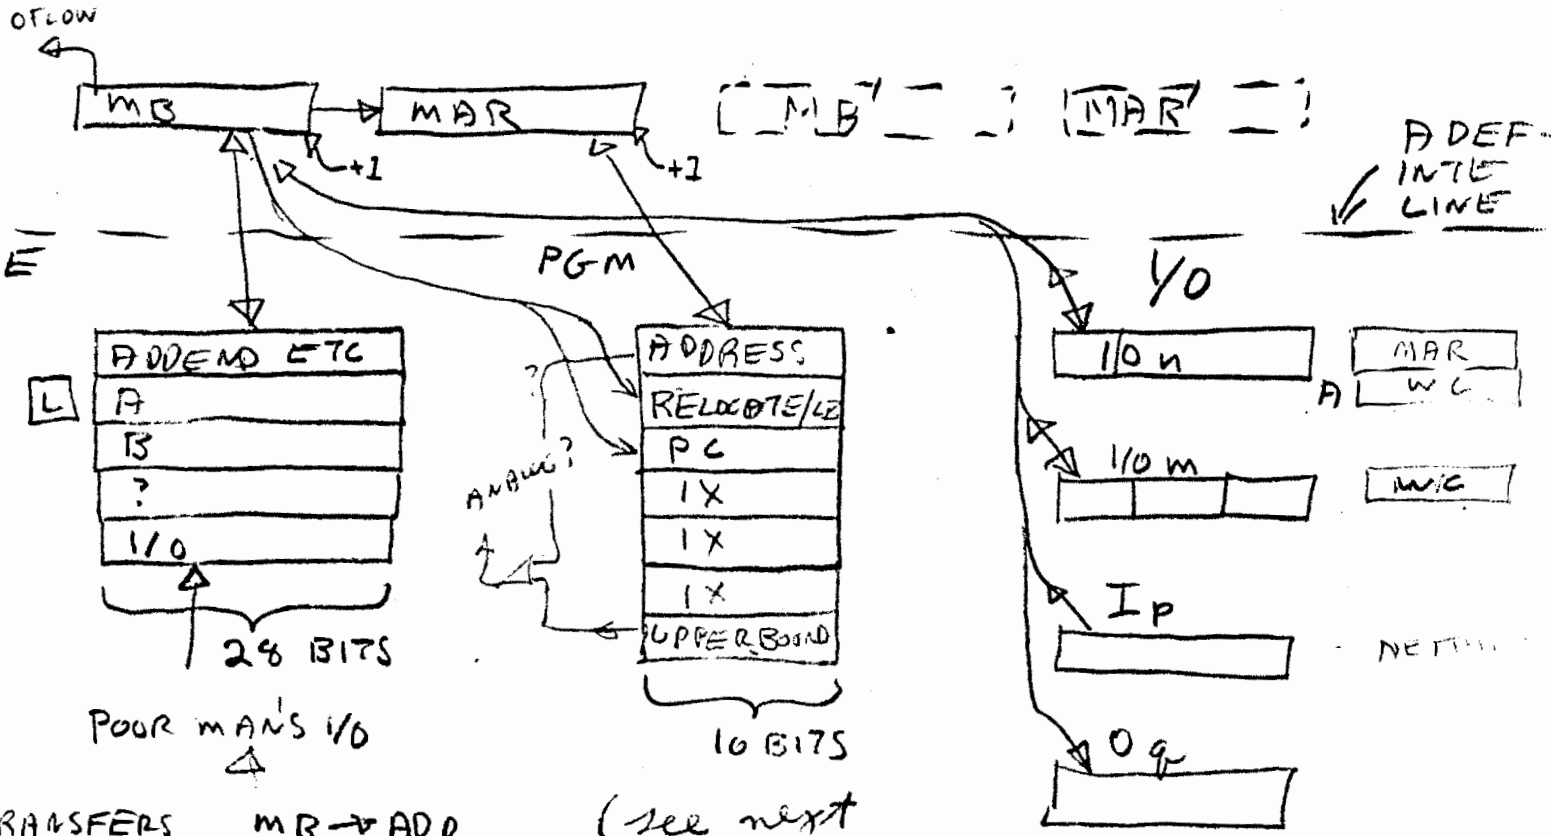 OFLOW
MB
MAR
MB'
MAR'
+1
+1
A DEF-
INTE
LINE
E
PGM
I/O
ADDEND ETC
L
A
B
?
I/O
28 BITS
POOR MAN'S I/O
?
ADDRESS
PC
IX
IX
IX
UPPER BOUND
I/O n
MAR
A
WC
I/O m
W/C
Ip
Oq
RANSFERS MB → ADD
(see next